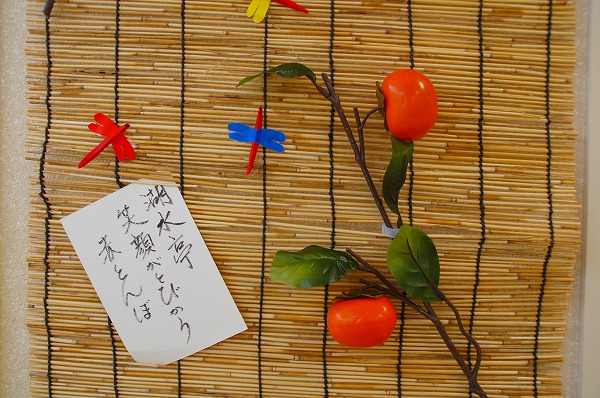 湖水亭
笑顔がとびかう
赤とんぼ